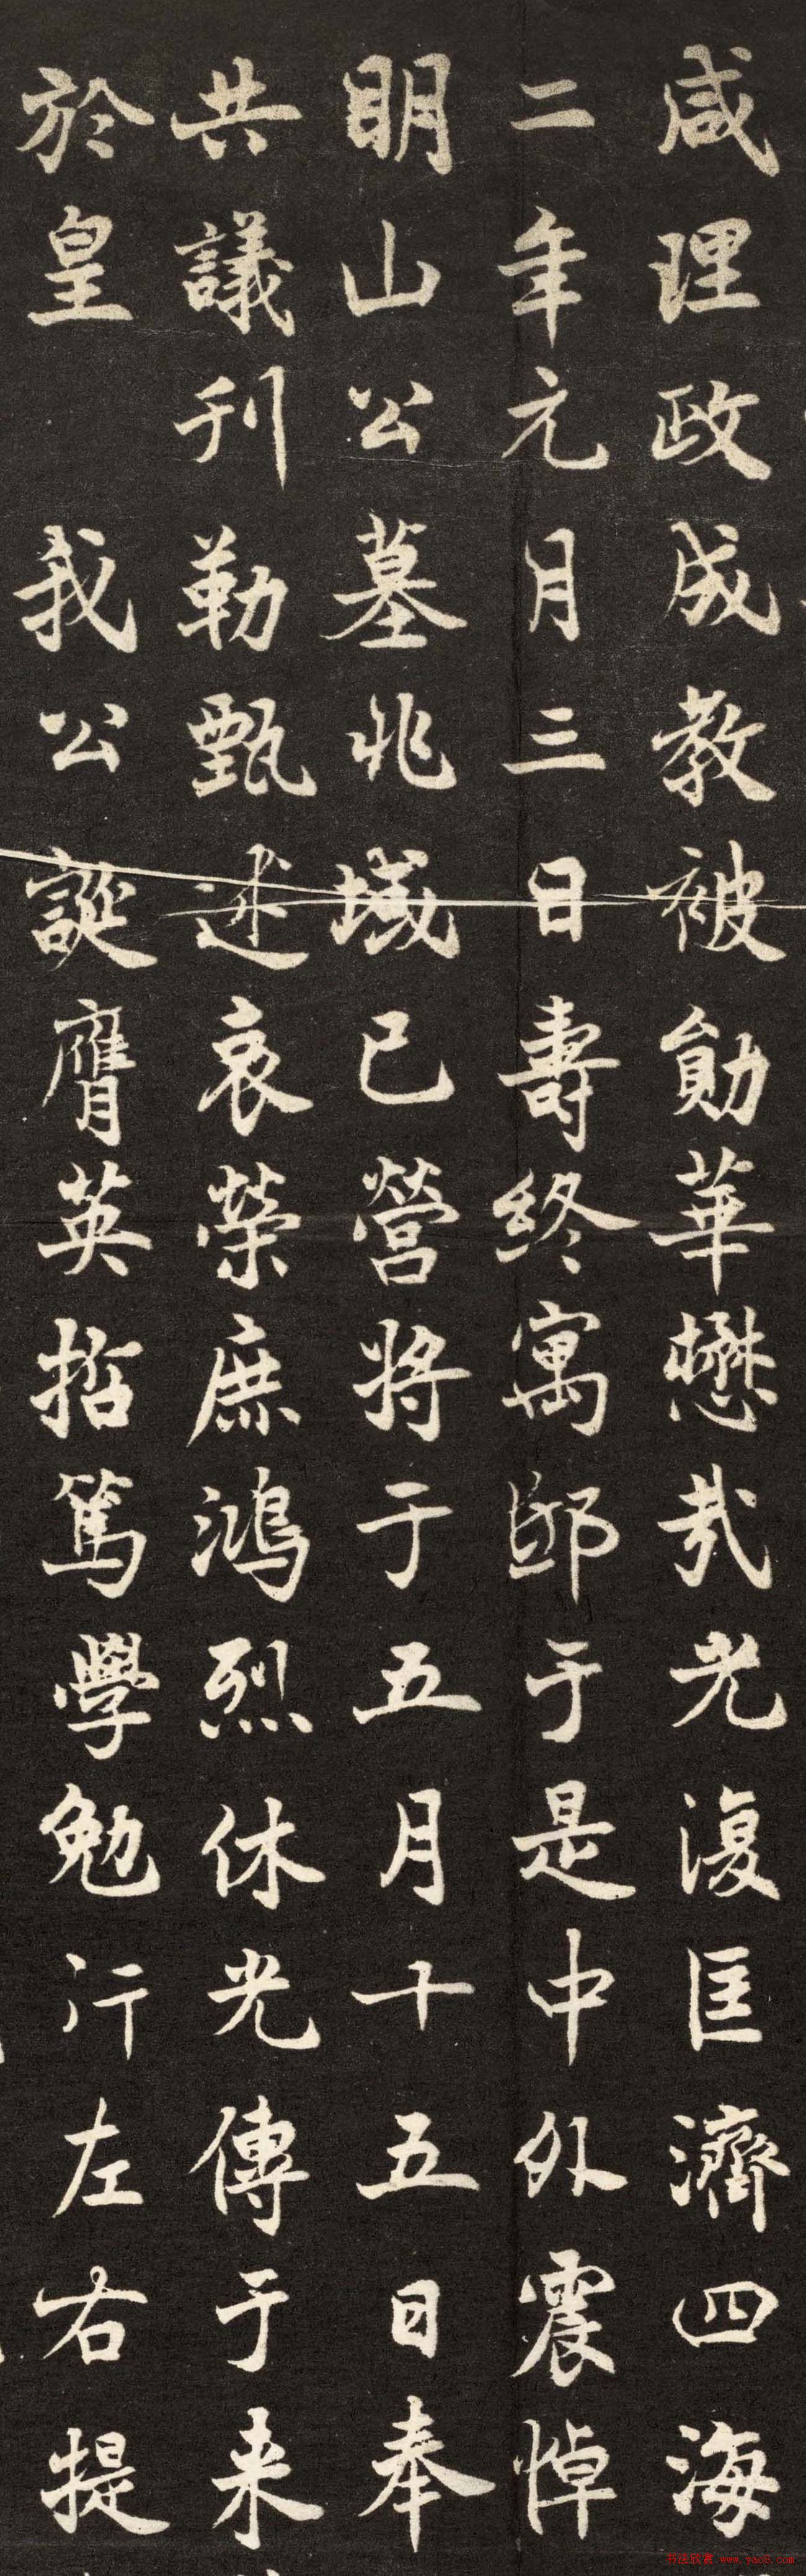 咸理政成教被勛華懋㢤光復匡濟四海
二年元月三日壽終寓邸于是中外震悼
眀山公墓兆域已營将于五月十五日奉
共議刊勒甄述哀榮庶鴻烈休光傳于来
於皇 我公誕膺英括篤學勉行左右提
书法欣赏.www.yac8.com